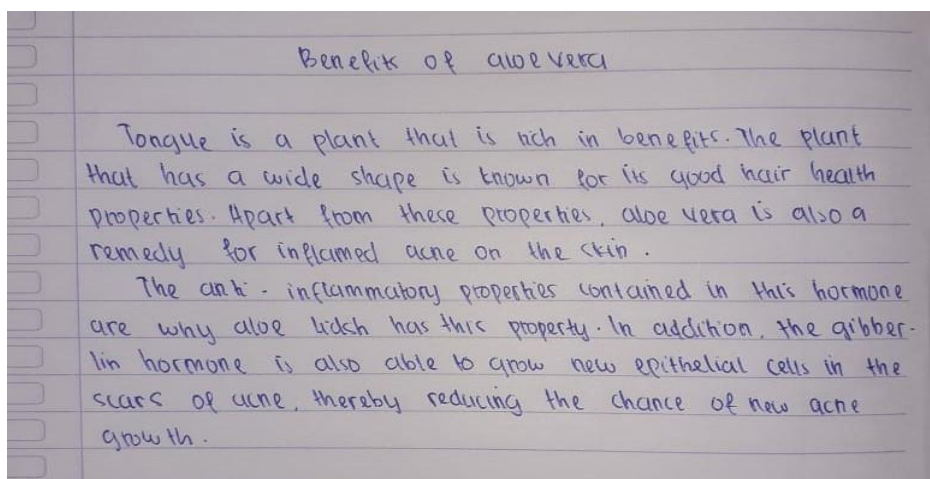 Benefits of aloe vera
Tongue is a plant that is rich in benefits. The plant
that has a wide shape is known for its good hair health
properties. Apart from these properties, aloe vera is also a
remedy for inflamed acne on the skin.
The anti - inflammatory properties contained in this hormone
are why aloe lidah has this property. In addition, the gibber-
lin hormone is also able to grow new epithelial cells in the
scars of acne, thereby reducing the chance of new acne
growth.